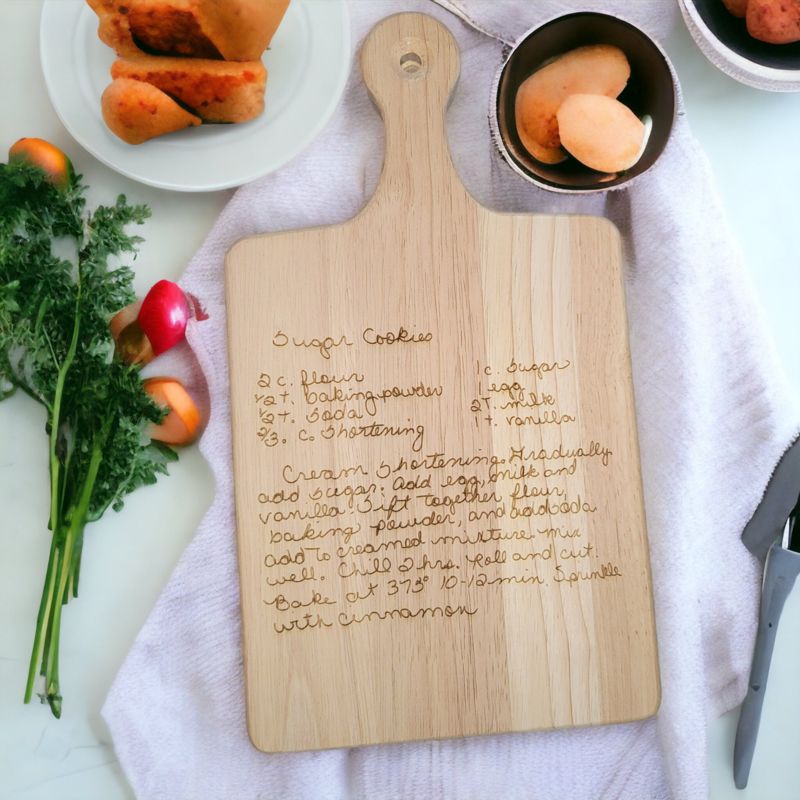 Sugar Cookies
2 c. flour 1 c. Sugar
1/2 t. baking powder 1 egg
1/2 t. Soda 2 T. milk
2/3. c. Shortening 1 t. vanilla
Cream Shortening. Gradually
add sugar. Add egg, milk and
vanilla. Sift together flour,
baking powder, and add soda
add to creamed mixture. Mix
well. Chill 2 hrs. Roll and cut.
Bake at 375° 10-12 min. Sprinkle
with cinnamon